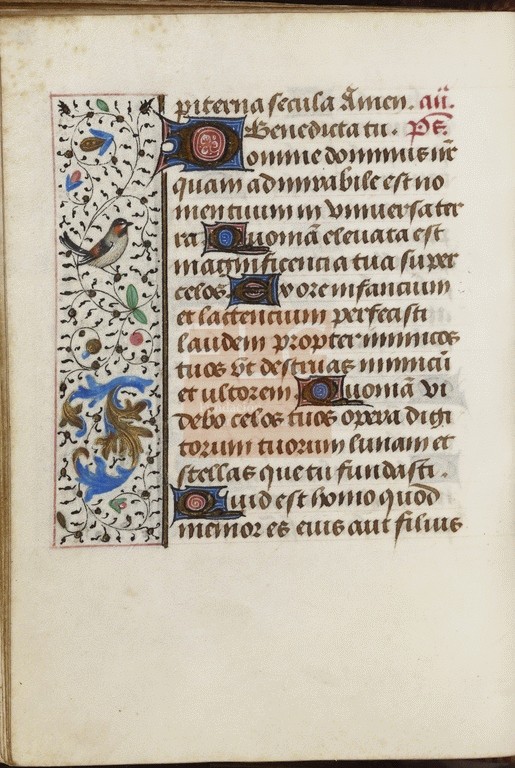 piterna secula Amen. añ.
Benedicta tu. Ps̄.
Domine dominus nr̄
quam admirabile est no
men tuum in vniuersa ter
ra Quoniā eleuata est
magnificencia tua super
celos Ex ore infancium
et lactencium perfecisti
laudem propter inimicos
tuos vt destruas inimicū
et ultorem Quoniā vi
debo celos tuos opera digi
torum tuorum lunam et
stellas que tu fundasti.
Quid est homo quod
memor es eius aut filius